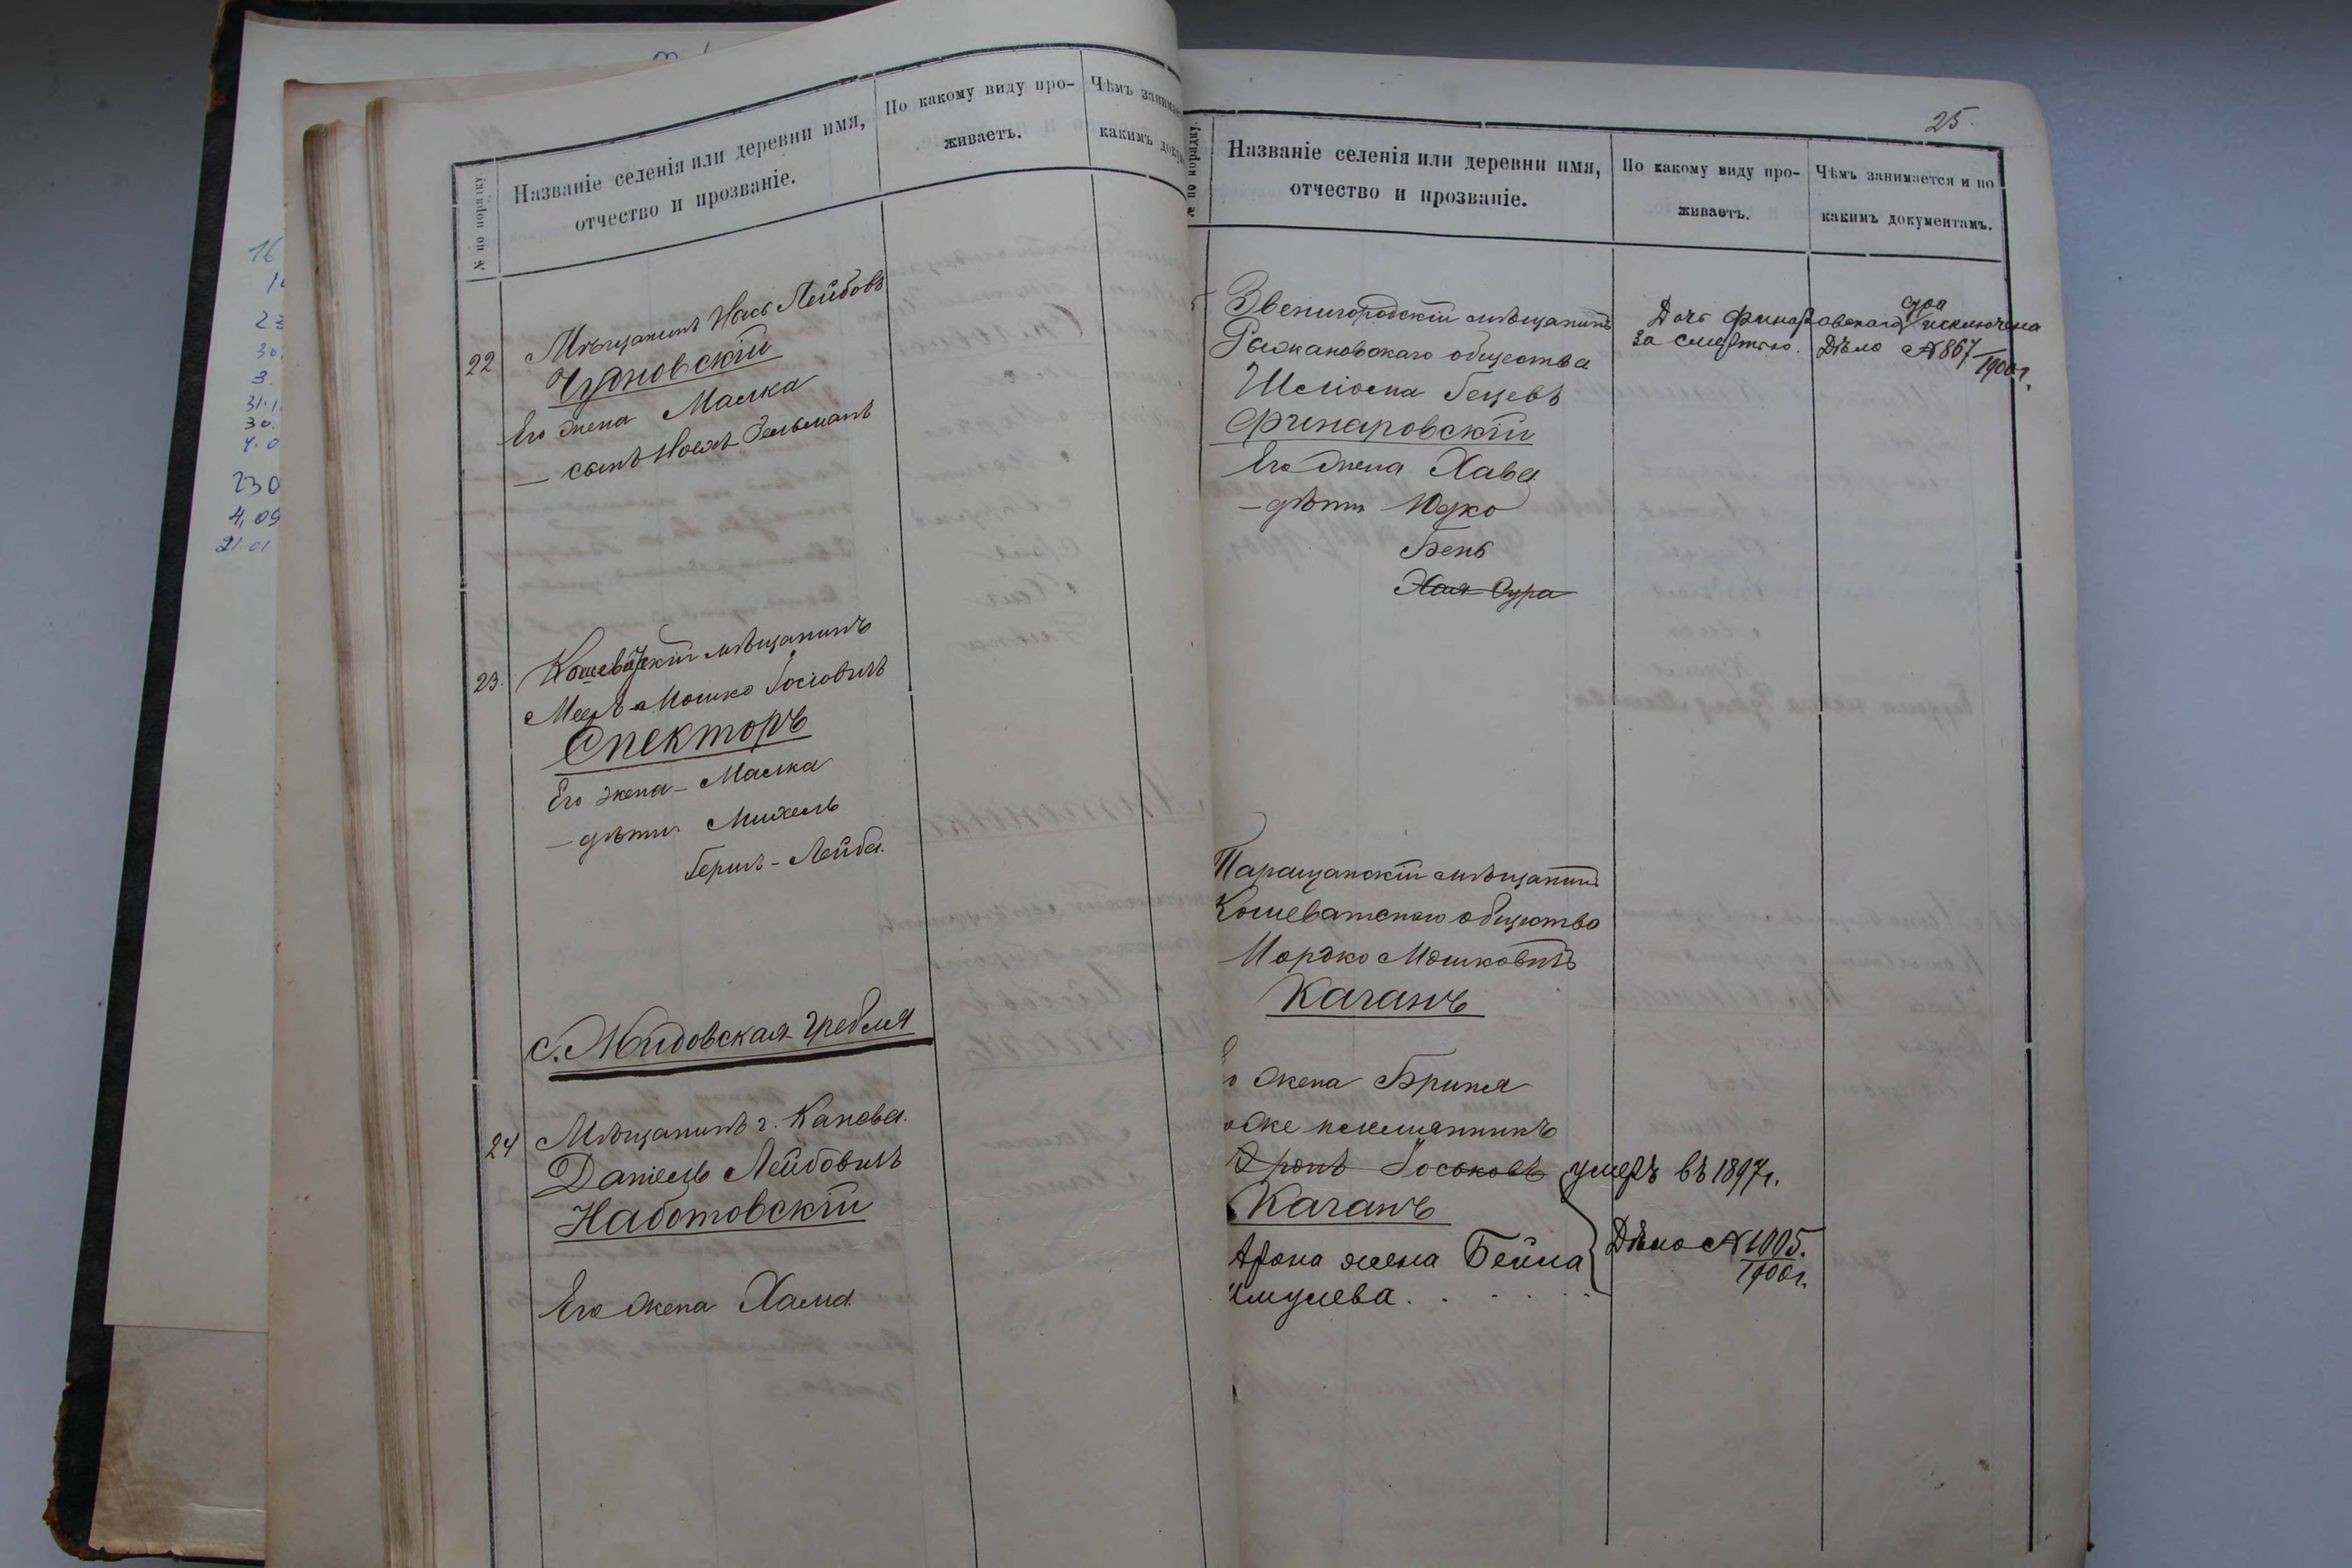 № по порядку
Названіе селенія или деревни имя,
отчество и прозваніе.
По какому виду про-
живаетъ.
Чѣмъ занимае
какимъ доку
22
Мѣщанинъ Іось Лейбовъ
Чудновскій
Его жена Малка
— сынъ Зельманъ
23.
Кошеватскій мѣщанинъ
Мееръ-Мошко Іосіовичъ
Спекторъ
Его жена – Малка
— дѣти. Михель
Гершъ – Лейба.
с. Жидовская Гребля
24
Мѣщанинъ г. Канева.
Даніель Лейбовичъ
Наботовскій
Его жена Хаия
25.
№ по порядку.
Названіе селенія или деревни имя,
отчество и прозваніе.
По какому виду про-
живаетъ.
Чѣмъ занимается и по
какимъ документамъ.
Звенигородскій мѣщанинъ
Рыжановскаго общества
Шліома Гецевъ
Финаровскій
Его жена Хава
— дѣти Юдко
Бень
Хая-Сура
Дочь Финаровскаго исключена
за смертью. Дѣло №867/1900г.
Таращанскій мѣщанинъ
Кошеватскаго общества
Мордко Мошковичъ
Каганъ
Его жена Бриня
оже племянникъ
Аронъ Госьковъ умеръ въ 1897г.
Каганъ
Арона жена Бейла
Шмулева. . . . . .
Дѣло №1005.
1900г.
16
23
30.
3.
31.1
30.
4.0
230
4.09
21.01